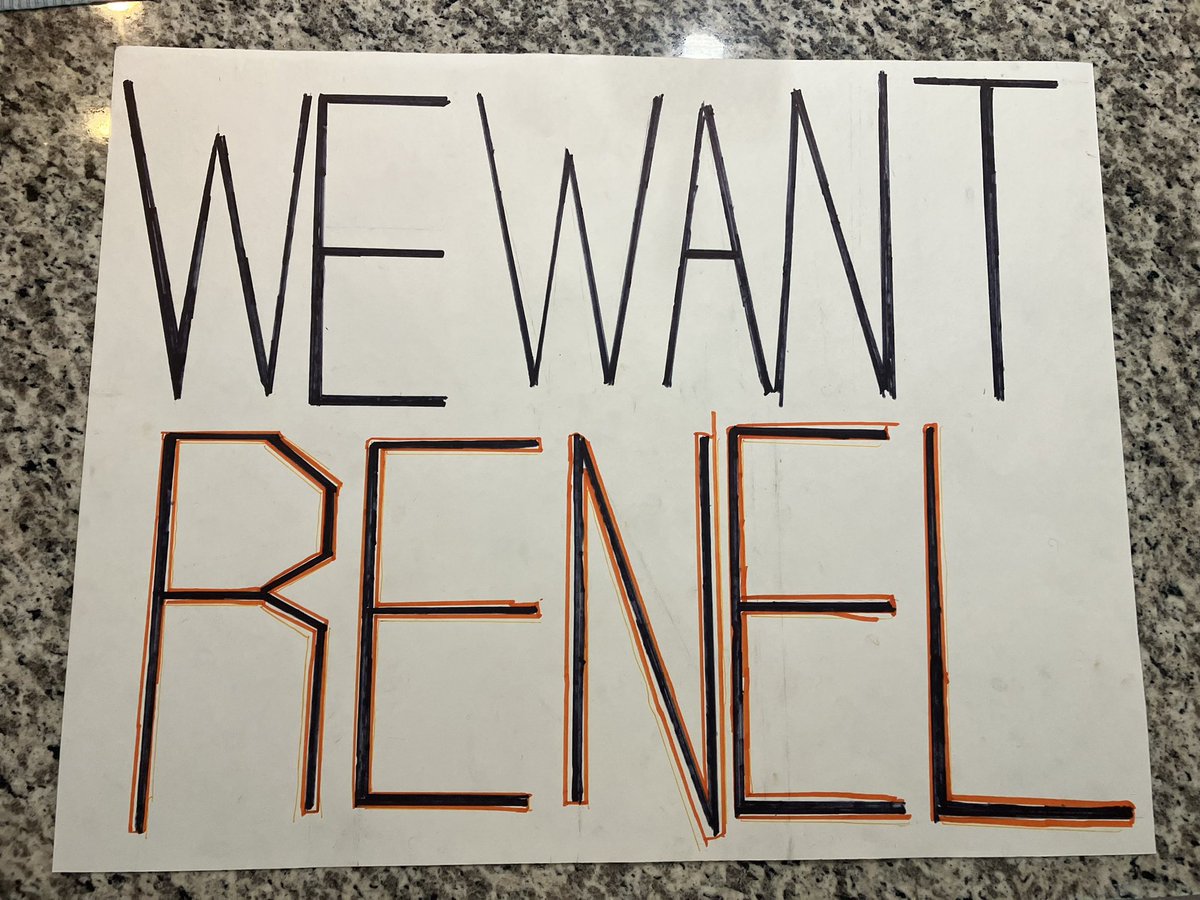 WE WANT
RENEL